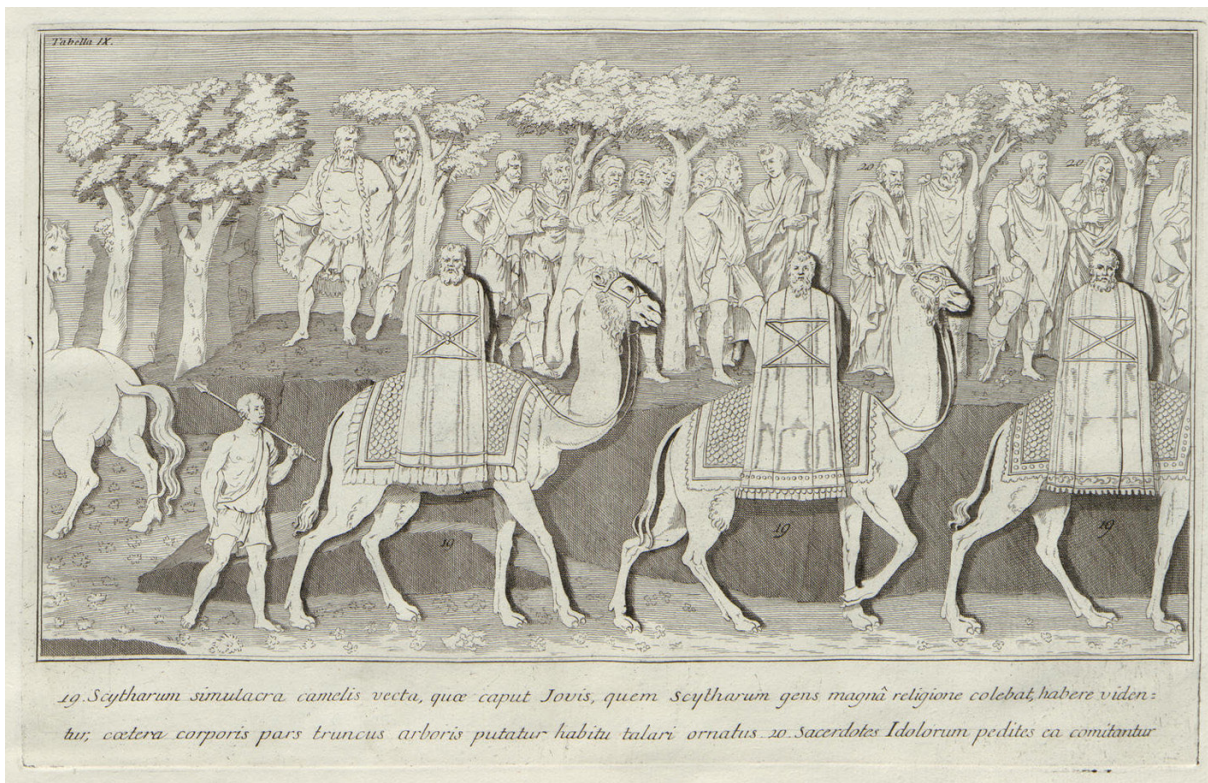 Tabella IX.
20
20
19
19
19
19. Scytharum simulacra camelis vecta, quæ caput Jovis, quem Scytharum gens magnâ religione colebat, habere viden:
tur, cætera corporis pars truncus arboris putatur habitu talari ornatus. 20. Sacerdotes Idolorum pedites ea comitantur